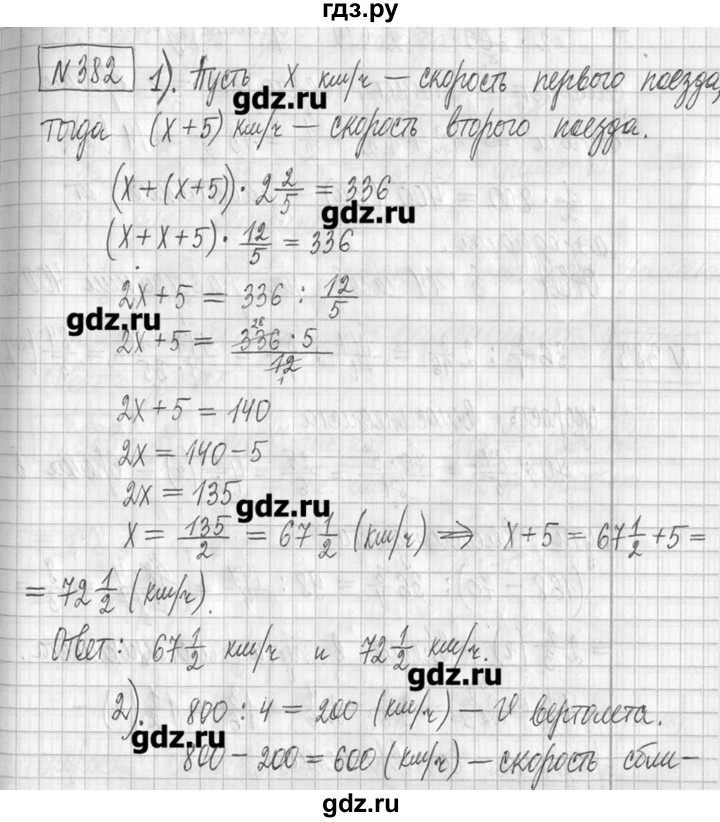 гдз.ру
№382 1). Пусть x км/ч — скорость первого поезда,
gdz.ru
тогда (x+5) км/ч — скорость второго поезда.
(x+(x+5))·2 2/5 = 336
gdz.ru
(x+x+5)·12/5 = 336
2x+5 = 336 : 12/5
gdz.ru
2x+5 = 336·5/12
28
1
2x+5 = 140
2x = 140-5
2x = 135
gdz.ru
x = 135/2 = 67 1/2 (км/ч) ⇒ x+5 = 67 1/2 +5 =
= 72 1/2 (км/ч).
Ответ: 67 1/2 км/ч и 72 1/2 км/ч.
gdz.ru
2). 800 : 4 = 200 (км/ч) — V вертолета.
gdz.ru
800 - 200 = 600 (км/ч) — скорость сбли-
gdz.ru